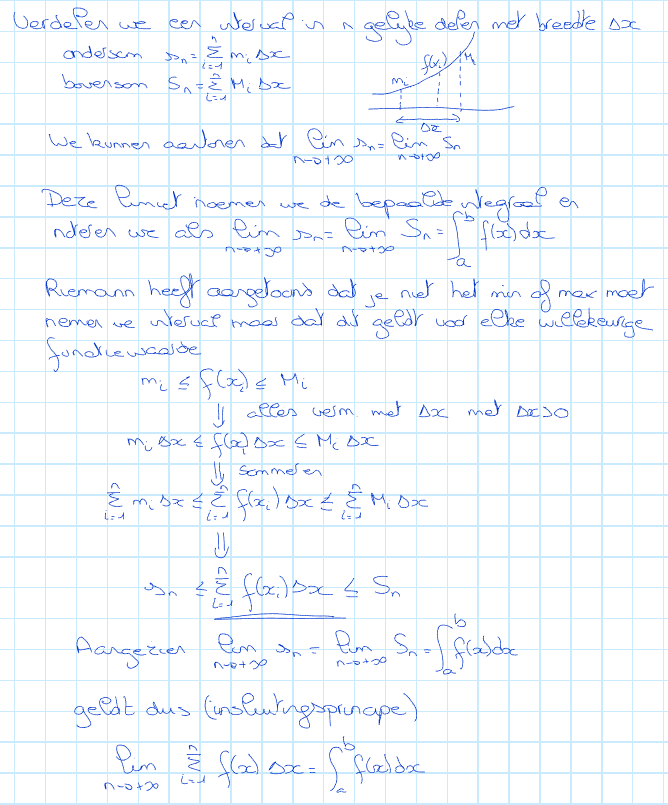 Verdelen we een interval in n gelijke delen met breedte Δx
ondersom sₙ = Σⁿᵢ₌₁ mᵢ Δx
bovensom Sₙ = Σⁿᵢ₌₁ Mᵢ Δx
mᵢ f(xᵢ) Mᵢ
Δx
We kunnen aantonen dat lim n→+∞ sₙ = lim n→+∞ Sₙ
Deze limiet noemen we de bepaalde integraal en
noteren we als lim n→+∞ sₙ = lim n→+∞ Sₙ = ∫ₐᵇ f(x)dx
Riemann heeft aangetoond dat je niet het min of max moet
nemen we interval maar dat dit geldt voor elke willekeurige
functiewaarde
mᵢ ≤ f(xᵢ) ≤ Mᵢ
⇓ alles verm. met Δx met Δx>0
mᵢ Δx ≤ f(xᵢ) Δx ≤ Mᵢ Δx
⇓ sommeren
Σⁿᵢ₌₁ mᵢ Δx ≤ Σⁿᵢ₌₁ f(xᵢ) Δx ≤ Σⁿᵢ₌₁ Mᵢ Δx
⇓
sₙ ≤ Σⁿᵢ₌₁ f(xᵢ) Δx ≤ Sₙ
Aangezien lim n→+∞ sₙ = lim n→+∞ Sₙ = ∫ₐᵇ f(x)dx
geldt dus (insluitingsprincipe)
lim n→+∞ Σⁿᵢ₌₁ f(x) Δx = ∫ₐᵇ f(x)dx